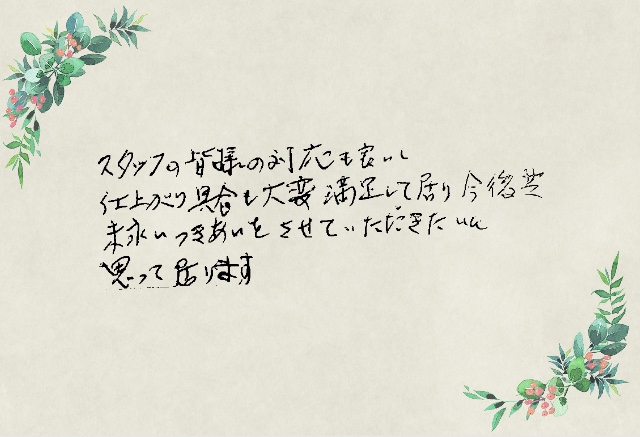 スタッフの皆様の対応も良いし
仕上がり具合も大変満足して居り今後共
末永いつきあいをさせていただきたいと
思って居ります